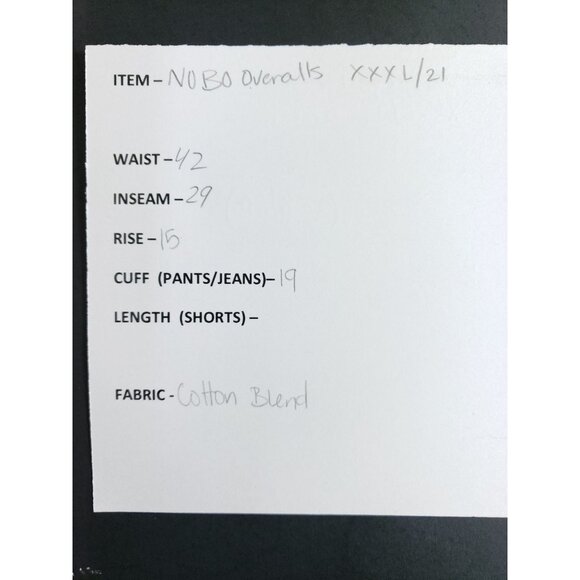 ITEM – NOBO Overalls XXXL/21
WAIST – 42
INSEAM – 29
RISE – 15
CUFF (PANTS/JEANS)– 19
LENGTH (SHORTS) –
FABRIC - Cotton Blend